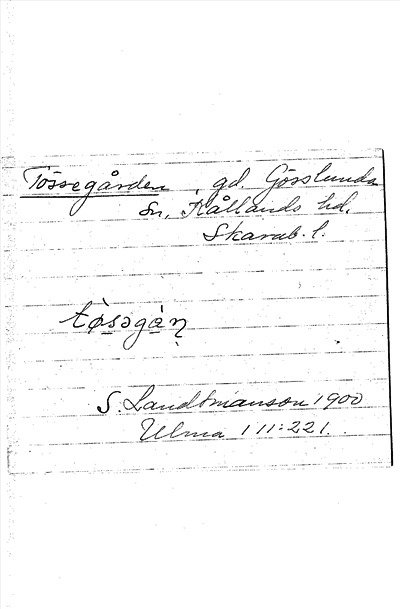 Tössegården, gd. Gösslunda
sn, Kållands hd.
Skarab. l.
tø̀sǝgá̀ṇ
S. Landtmanson 1900
Ulma 111:221.